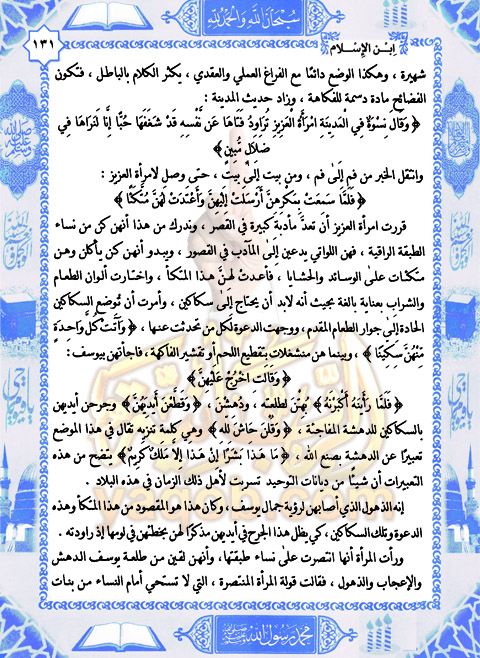 سُبْحَانَ اللَّهِ وَالْحَمْدُ لِلَّهِ
١٣١
ابن الإسلام
شهيرة ، وهكذا الوضع دائمًا مع الفراغ العملي والعقدي ، يكثر الكلام بالباطل ، فتكون
الفضائح مادة دسمة للفكاهة ، وزاد حديث المدينة :
﴿ وَقَالَ نِسْوَةٌ فِي الْمَدِينَةِ امْرَأَةُ الْعَزِيزِ تُرَاوِدُ فَتَاهَا عَن نَّفْسِهِ قَدْ شَغَفَهَا حُبًّا إِنَّا لَنَرَاهَا فِي
ضَلَالٍ مُّبِينٍ ﴾
وانتقل الخبر من فم إلى فم ، ومن بيت إلى بيت ، حتى وصل لامرأة العزيز :
﴿ فَلَمَّا سَمِعَتْ بِمَكْرِهِنَّ أَرْسَلَتْ إِلَيْهِنَّ وَأَعْتَدَتْ لَهُنَّ مُتَّكَئًا ﴾
قررت امرأة العزيز أن تعدَّ مأدبة كبيرة في القصر ، وندرك من هذا أنهن كن من نساء
الطبقة الراقية ، فهن اللواتي يدعين إلى المآدب في القصور ، ويبدو أنهن كن يأكلن وهن
متكئات على الوسائد والحشايا ، فأعدتْ لهنَّ هذا المتكأ ، واختارت ألوان الطعام
والشراب بعناية بالغة بحيث أنه لابد أن يحتاج إلى سكاكين ، وأمرت أن تُوضع السكاكين
الحادة إلى جوار الطعام المقدم ، ووجهت الدعوة لكل من تحدثت عنها ، ﴿ وَآتَتْ كُلَّ وَاحِدَةٍ
مِّنْهُنَّ سِكِّينًا ﴾ ، وبينما هن منشغلات بتقطيع اللحم أو تقشير الفاكهة ، فاجأتهن بيوسف :
﴿ وَقَالَتِ اخْرُجْ عَلَيْهِنَّ ﴾
﴿ فَلَمَّا رَأَيْنَهُ أَكْبَرْنَهُ ﴾ بُهتْن لطلعته ، ودُهشْن ، ﴿ وَقَطَّعْنَ أَيْدِيَهُنَّ ﴾ وجرحن أيديهن
بالسكاكين للدهشة المفاجئة ، ﴿ وَقُلْنَ حَاشَ لِلَّهِ ﴾ وهي كلمة تنزيه تقال في هذا الموضع
تعبيرًا عن الدهشة بصنع الله ، ﴿ مَا هَذَا بَشَرًا إِنْ هَذَا إِلَّا مَلَكٌ كَرِيمٌ ﴾ يتضح من هذه
التعبيرات أن شيئًا من ديانات التوحيد تسربت لأهل ذلك الزمان في هذه البلاد .
إنه الذهول الذي أصابهن لرؤية جمال يوسف ، وكان هذا هو المقصود من هذا المتكأ وهذه
الدعوة وتلك السكاكين ، كي يظل هذا الجرح في أيديهن مذكرًا لهن بخطئهن في لومها إذ راودته .
ورأت المرأة أنها انتصرت على نساء طبقتها ، وأنهن لقين من طلعة يوسف الدهش
والإعجاب والذهول ، فقالت قولة المرأة المنتصرة ، التي لا تستحي أمام النساء من بنات
محمد رسول الله